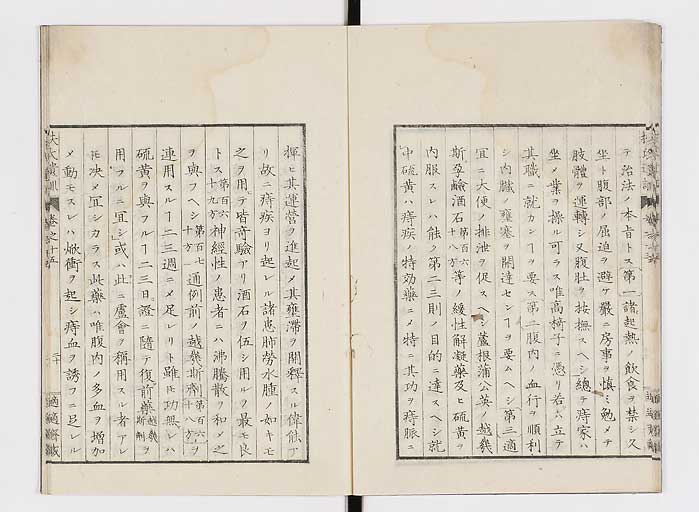 テ治法ノ本旨トス第一諸起熱ノ飲食ヲ禁シ久
坐ト腹部ノ屈迫ヲ避ケ嚴ニ房事ヲ慎ミ勉メテ
肢體ヲ運轉シ又腹肚ヲ按撫スヘシ總テ痔家ハ
坐メ業ヲ操ル可ラス唯高椅子ニ憑リ若クハ立テ
其職ニ就カンヿヲ要ス第二腹内ノ血行ヲ順利
シ内臓ノ壅塞ヲ開達センヿヲ要ムヘシ第三適
宜ニ大便ノ排泄ヲ促スヘシ蘆根蒲公英ノ越幾
斯孕鹼酒石第百六十八方等ノ緩性解凝藥及ヒ硫黄ヲ
内服スレハ能ク第二三則ノ目的ニ達スヘシ就
中硫黄ハ痔疾ノ特効藥ニメ特ニ其功ヲ痔脈ニ
揮ヒ其運營ヲ進起メ其壅滞ヲ開釋スル偉能ア
リ故ニ痔疾ヨリ起レル諸患肺勞水腫ノ如キモ
之ヲ用テ皆奇驗アリ酒石ヲ伍シ用ルヲ最モ良
トス第百六十九方神經性ノ患者ニハ沸騰散ヲ和メ之
ヲ與フヘシ第百七十方一通例前ノ越幾斯劑第百六十八方ヲ
連用スルヿ二三週ニメ足レリト雖モ功無レハ
硫黄ヲ與フルヿ二三日證ニ隨テ復前藥越幾斯劑ヲ
用フルニ宜シ或ハ此ニ蘆會ヲ稱用スル者アレ
𪜈決メ宜シカラス此藥ハ唯腹内ノ多血ヲ増加
メ動モスレハ焮衝ヲ起シ痔血ヲ誘フニ足レル
扶氏遺訓 卷之十五
適適齋藏